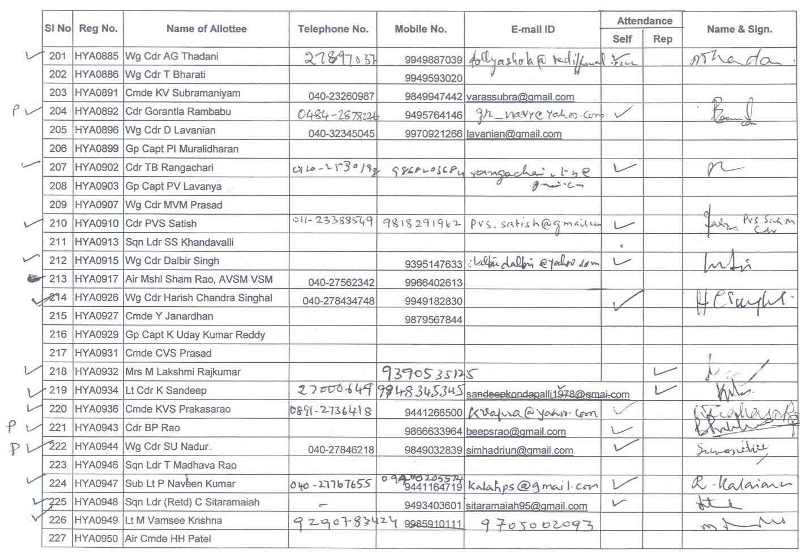 Sl No Reg No. Name of Allottee Telephone No. Mobile No. E-mail ID Attendance Name & Sign.
Self Rep
201 HYA0885 Wg Cdr AG Thadani 9949887039
202 HYA0886 Wg Cdr T Bharati 9949593020
203 HYA0891 Cmde KV Subramaniyam 040-23260987 9849947442 varassubra@gmail.com
P 204 HYA0892 Cdr Gorantla Rambabu 9495764146 gr_navy@yahoo.com
205 HYA0896 Wg Cdr D Lavanian 040-32345045 9970921266 lavanian@gmail.com
206 HYA0899 Gp Capt PI Muralidharan
207 HYA0902 Cdr TB Rangachari
208 HYA0903 Gp Capt PV Lavanya
209 HYA0907 Wg Cdr MVM Prasad
210 HYA0910 Cdr PVS Satish 011-23388549 9818291962 pvs.satish@gmail.com PVS Satish
Cdr
211 HYA0913 Sqn Ldr SS Khandavalli
212 HYA0915 Wg Cdr Dalbir Singh 9395147633
213 HYA0917 Air Mshl Sham Rao, AVSM VSM 040-27562342 9966402613
214 HYA0926 Wg Cdr Harish Chandra Singhal 040-278434748 9949182830
215 HYA0927 Cmde Y Janardhan 9879567844
216 HYA0929 Gp Capt K Uday Kumar Reddy
217 HYA0931 Cmde CVS Prasad
218 HYA0932 Mrs M Lakshmi Rajkumar 9390535125
219 HYA0934 Lt Cdr K Sandeep 27000649 9848345345 sandeepkondapalli1978@gmai.com
220 HYA0936 Cmde KVS Prakasarao 0891-2736418 9441266500
P 221 HYA0943 Cdr BP Rao 9866633964 beepsrao@gmail.com
P 222 HYA0944 Wg Cdr SU Nadur. 040-27846218 9849032839 simhadriun@gmail.com
223 HYA0946 Sqn Ldr T Madhava Rao
224 HYA0947 Sub Lt P Naveen Kumar 040-27767655 9441164719 kalahps@gmail.com
225 HYA0948 Sqn Ldr (Retd) C Sitaramaiah - 9493403601 sitaramaiah95@gmail.com
226 HYA0949 Lt M Vamsee Krishna 9290783424 9985910111 9705002093
227 HYA0950 Air Cmde HH Patel